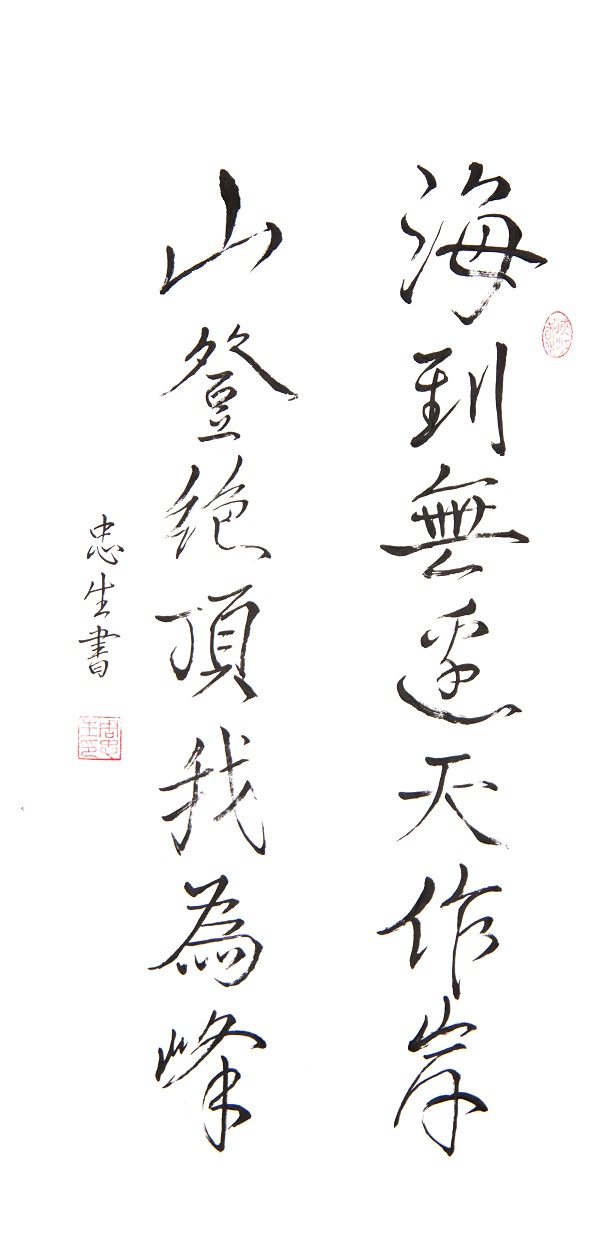 海到無邊天作岸
山登絕頂我為峰
忠生書